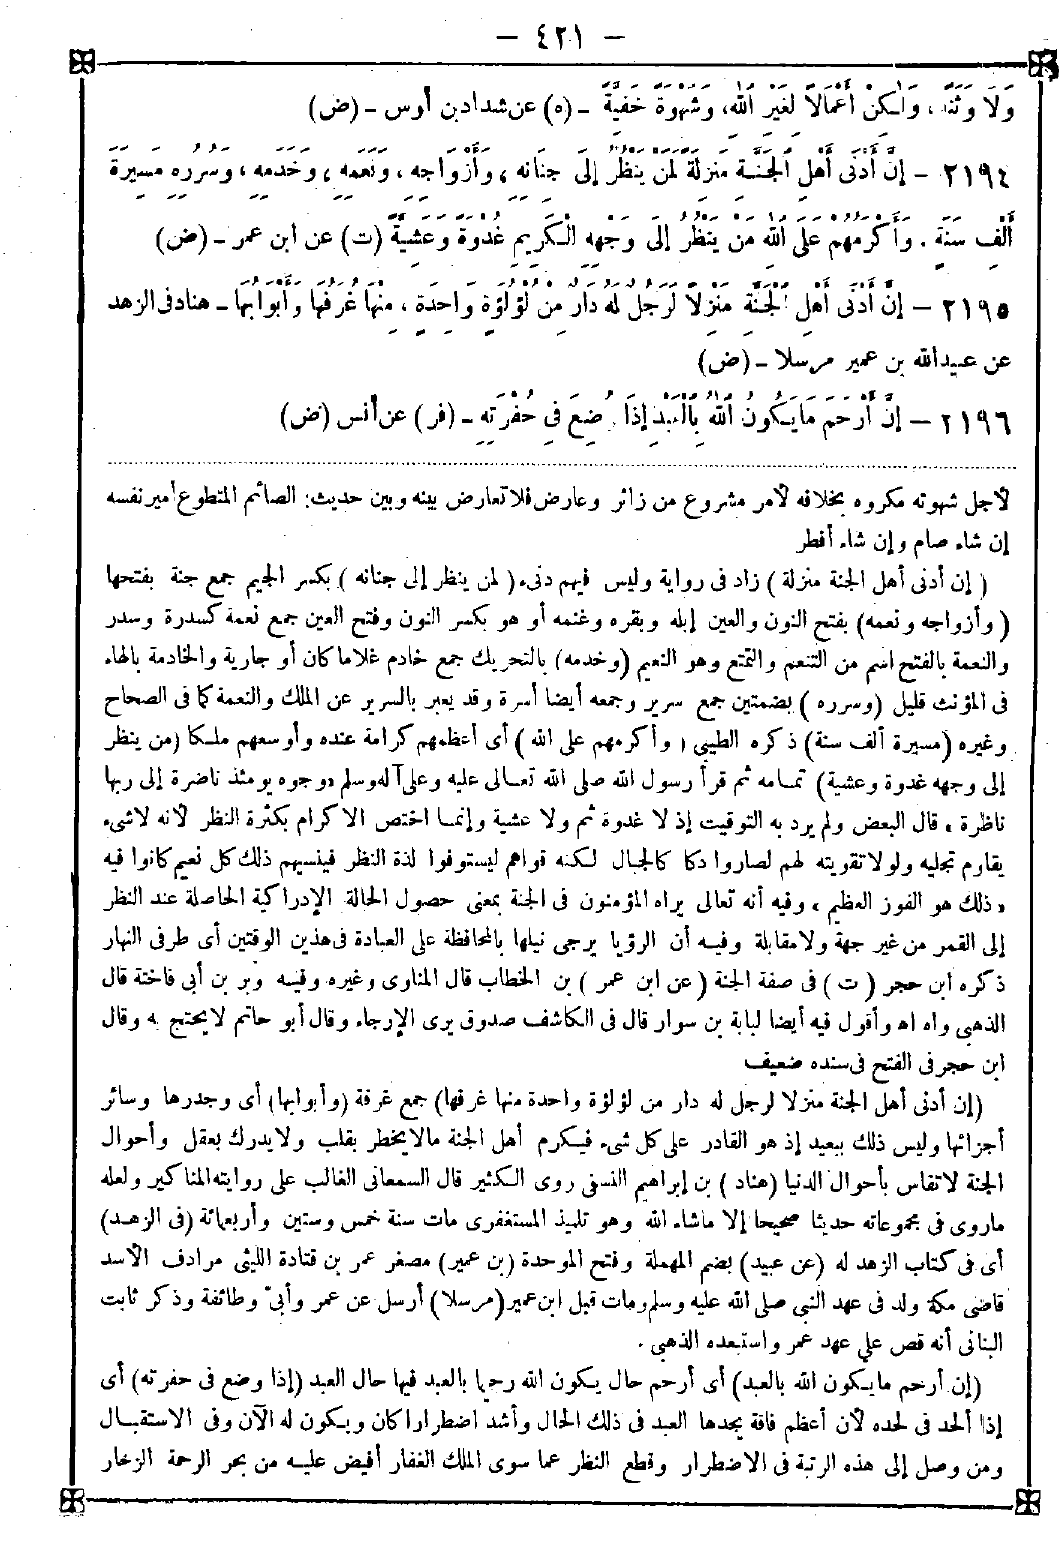 — ٤٢١ —
وَلَا وَثَنًا، وَلٰكِنْ أَعْمَالًا لِغَيْرِ اللّٰهِ، وَشَهْوَةً خَفِيَّةً - (ه) عن شداد بن أوس - (ض)
٢١٩٤ - إِنَّ أَدْنَى أَهْلِ الْجَنَّةِ مَنْزِلَةً لَمَنْ يَنْظُرُ إِلَى جِنَانِهِ، وَأَزْوَاجِهِ، وَنَعَمِهِ، وَخَدَمِهِ، وَسُرُرِهِ مَسِيرَةَ
أَلْفِ سَنَةٍ. وَأَكْرَمُهُمْ عَلَى اللّٰهِ مَنْ يَنْظُرُ إِلَى وَجْهِهِ الْكَرِيمِ غُدْوَةً وَعَشِيَّةً (ت) عن ابن عمر - (ض)
٢١٩٥ - إِنَّ أَدْنَى أَهْلِ الْجَنَّةِ مَنْزِلًا لَرَجُلٌ لَهُ دَارٌ مِنْ لُؤْلُؤَةٍ وَاحِدَةٍ، مِنْهَا غُرَفُهَا وَأَبْوَابُهَا - هناد فى الزهد
عن عبيدالله بن عمير مرسلا - (ض)
٢١٩٦ - إِنَّ أَرْحَمَ مَا يَكُونُ اللّٰهُ بِالْعَبْدِ إِذَا وُضِعَ فِى حُفْرَتِهِ - (فر) عن أنس (ض)
لأجل شهوته مكروه بخلافه لأمر مشروع من زائر وعارض فلا تعارض بينه وبين حديث: الصائم المتطوع أمير نفسه
إن شاء صام وإن شاء أفطر
(إن أدنى أهل الجنة منزلة) زاد فى رواية وليس فيهم دنىء (لمن ينظر إلى جنانه) بكسر الجيم جمع جنة بفتحها
(وأزواجه ونعمه) بفتح النون والعين إبله وبقره وغنمه أو هو بكسر النون وفتح العين جمع نعمة كسدرة وسدر
والنعمة بالفتح اسم من التنعم والتمتع وهو النعيم (وخدمه) بالتحريك جمع خادم غلاما كان أو جارية والخادمة بالهاء
فى المؤنث قليل (وسرره) بضمتين جمع سرير وجمعه أيضا أسرة وقد يعبر بالسرير عن الملك والنعمة كما فى الصحاح
وغيره (مسيرة ألف سنة) ذكره الطيبى (وأكرمهم على الله) أى أعظمهم كرامة عنده وأوسعهم ملكا (من ينظر
إلى وجهه غدوة وعشية) تمامه ثم قرأ رسول الله صلى الله تعالى عليه وعلى آله وسلم «وجوه يومئذ ناضرة إلى ربها
ناظرة» قال البعض ولم يرد به التوقيت إذ لا غدوة ثم ولا عشية وإنما اختص الاكرام بكثرة النظر لأنه لا شىء
يقاوم تجليه ولولا تقويته لهم لصاروا دكا كالجبال لكنه قواهم ليستوفوا لذة النظر فينسيهم ذلك كل نعيم كانوا فيه
«ذلك هو الفوز العظيم» وفيه أنه تعالى يراه المؤمنون فى الجنة بمعنى حصول الحالة الإدراكية الحاصلة عند النظر
إلى القمر من غير جهة ولا مقابلة وفيه أن الرؤيا يرجى نيلها بالمحافظة على العبادة فى هذين الوقتين أى طرفى النهار
ذكره ابن حجر (ت) فى صفة الجنة (عن ابن عمر) بن الخطاب قال المناوى وغيره وفيه وبر بن أبى فاختة قال
الذهبى واه اه وأقول فيه أيضا لبابة بن سوار قال فى الكاشف صدوق يرى الإرجاء وقال أبو حاتم لا يحتج به وقال
ابن حجر فى الفتح فى سنده ضعيف
(إن أدنى أهل الجنة منزلا لرجل له دار من لؤلؤة واحدة منها غرفها) جمع غرفة (وأبوابها) أى وجدرها وسائر
أجزائها وليس ذلك ببعيد إذ هو القادر على كل شىء فيكرم أهل الجنة مالا يخطر بقلب ولا يدرك بعقل وأحوال
الجنة لا تقاس بأحوال الدنيا (هناد) بن إبراهيم النسفى روى الكثير قال السمعانى الغالب على روايته المناكير ولعله
ماروى فى مجموعاته حديثا صحيحا إلا ما شاء الله وهو تلميذ المستغفرى مات سنة خمس وستين وأربعمائة (فى الزهد)
أى فى كتاب الزهد له (عن عبيد) بضم المهملة وفتح الموحدة (بن عمير) مصغر عمر بن قتادة الليثى مرادف الأسد
قاضى مكة ولد فى عهد النبى صلى الله عليه وسلم ومات قبل ابن عمير (مرسلا) أرسل عن عمر وأبىّ وطائفة وذكر ثابت
البنانى أنه قص على عهد عمر واستبعده الذهبى.
(إن أرحم ما يكون الله بالعبد) أى أرحم حال يكون الله رحيما بالعبد فيها حال العبد (إذا وضع فى حفرته) أى
إذا ألحد فى لحده لأن أعظم فاقة يجدها العبد فى ذلك الحال وأشد اضطرارا كان ويكون له الآن وفى الاستقبال
ومن وصل إلى هذه الرتبة فى الاضطرار وقطع النظر عما سوى الملك الغفار أفيض عليه من بحر الرحمة الزخار